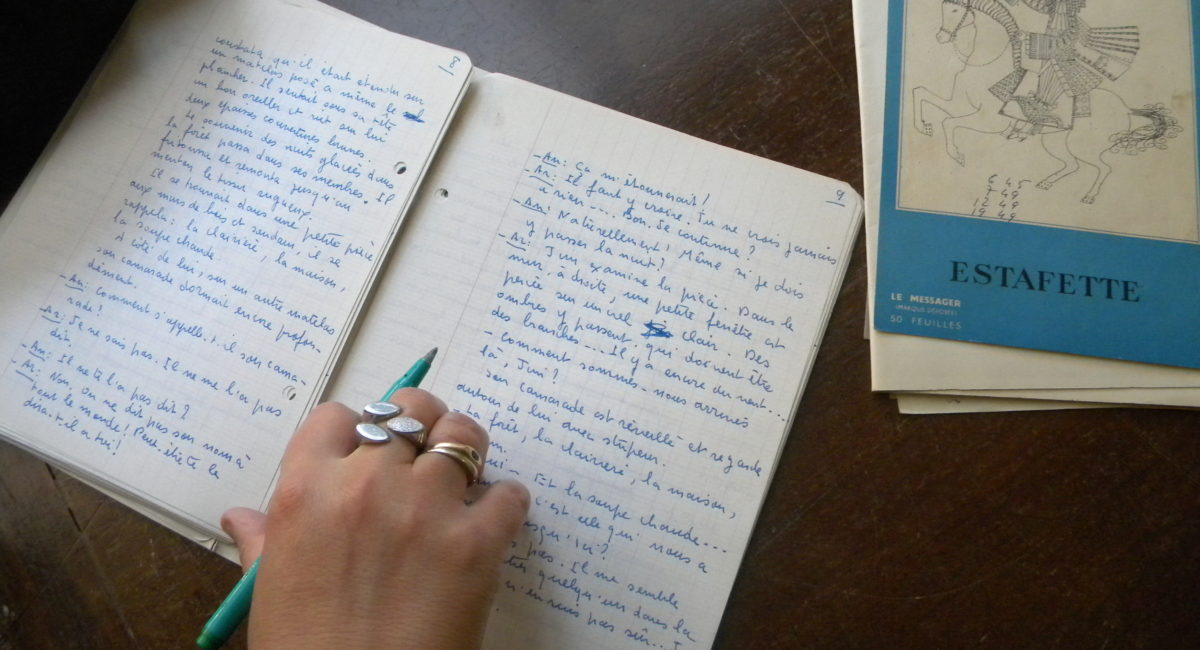 8
constata qu'il était étendu sur
un matelas posé à même le
plancher. Il sentait sous sa tête
un bon oreiller et sur lui
deux épaisses couvertures brunes.
Le souvenir des nuits glacées dans
la forêt passa dans ses membres. Il
frissonna et remonta jusqu'au
menton le tissu rugueux.
Il se trouvait dans une petite pièce
aux murs de bois et soudain, il se
rappela : la clairière, la maison,
la soupe chaude.
A côté de lui, sur un autre matelas
son camarade dormait encore profon-
dément.
- An : Comment s'appelle-t-il son cama-
rade ?
- Az : Je ne sais pas. Il ne me l'a pas
dit.
- An : Il ne te l'a pas dit ?
- Az : Non. On ne dit pas son nom à
tout le monde ! Peut-être te le
dira-t-il à toi !
9
- An : Ça m'étonnerait !
- Az : Il faut y croire. Tu ne crois jamais
à rien .... Bon. Je continue ?
- An : Naturellement ! Même si je dois
y passer la nuit !
- Az : Jim examine la pièce. Dans le
mur, à droite, une petite fenêtre est
percée sur un ciel clair. Des
ombres y passent qui doivent être
des branches... Il y a encore du vent...
- Comment sommes-nous arrivés
là, Jim ?
Son camarade est réveillé et regarde
autour de lui avec stupeur.
la forêt, la clairière, la maison,
- Et la soupe chaude...
c'est elle qui nous a
jusqu'ici ?
pas. Il me semble
quelqu'un dans la
n'en suis pas sûr...
6 45
7 49
12 49
19 49
ESTAFETTE
LE MESSAGER
(MARQUE DÉPOSÉE)
50 FEUILLES